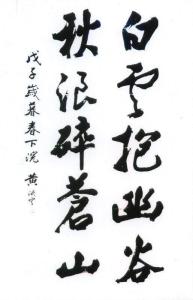 白雲抱幽谷
秋浪碎蒼山
戊子歲暮春下浣 黄